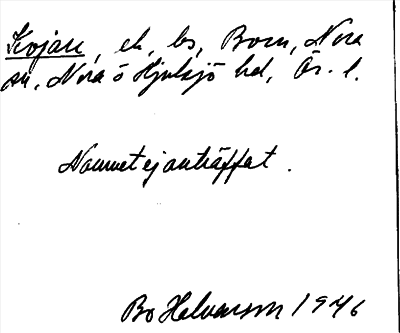 Kojan, eh, bs, Born, Nora
sn, Nora o Hjulsjö hd, Ör. l.
Namnet ej anträffat.
Bo Halvarson 1946